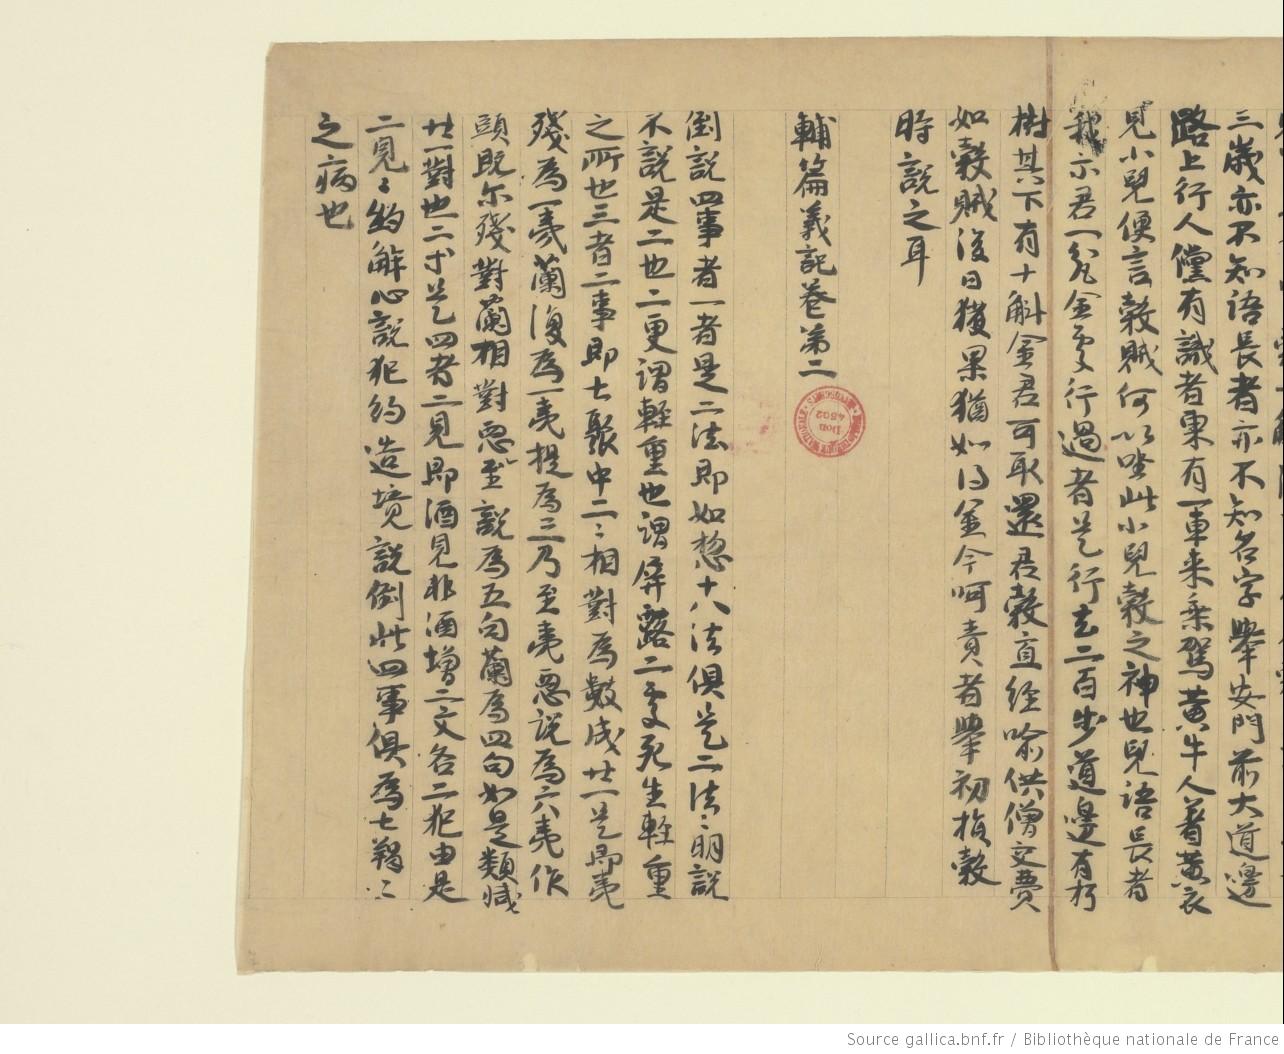 三歲亦不知語長者亦不知名字舉安門前大道邊
路上行人儻有識者東有一車來乘駕黃牛人著黃衣
見小兒便言穀賊何以坐此小兒穀之神也兒語長者
我示君一瓮金處行過者是行去二百步道邊有朽
樹其下有十斛金君可取還君穀直經喻供僧交費
如穀賊後日獲果猶如得金今呵責者舉初損穀
時說之耳
輔篇義記卷第二
倒說四事者一者是二法即如惣十八法俱是二法〻明說
不說是二也二更謂輕重也謂屏露二處死生輕重
之所也三者二事即七聚中二〻相對為數成廿一是即夷
殘為一夷蘭復為一夷提為三乃至夷惡說為六夷作
頭既尔殘對蘭相對惡至說為五句蘭為四句如是類減
廿一對也二中是四者二見即酒見非酒增二文各二犯由是
二見〻約解心說犯約造境說倒此四事俱為七羯〻
之病也
DON 4502
Source gallica.bnf.fr / Bibliothèque nationale de France